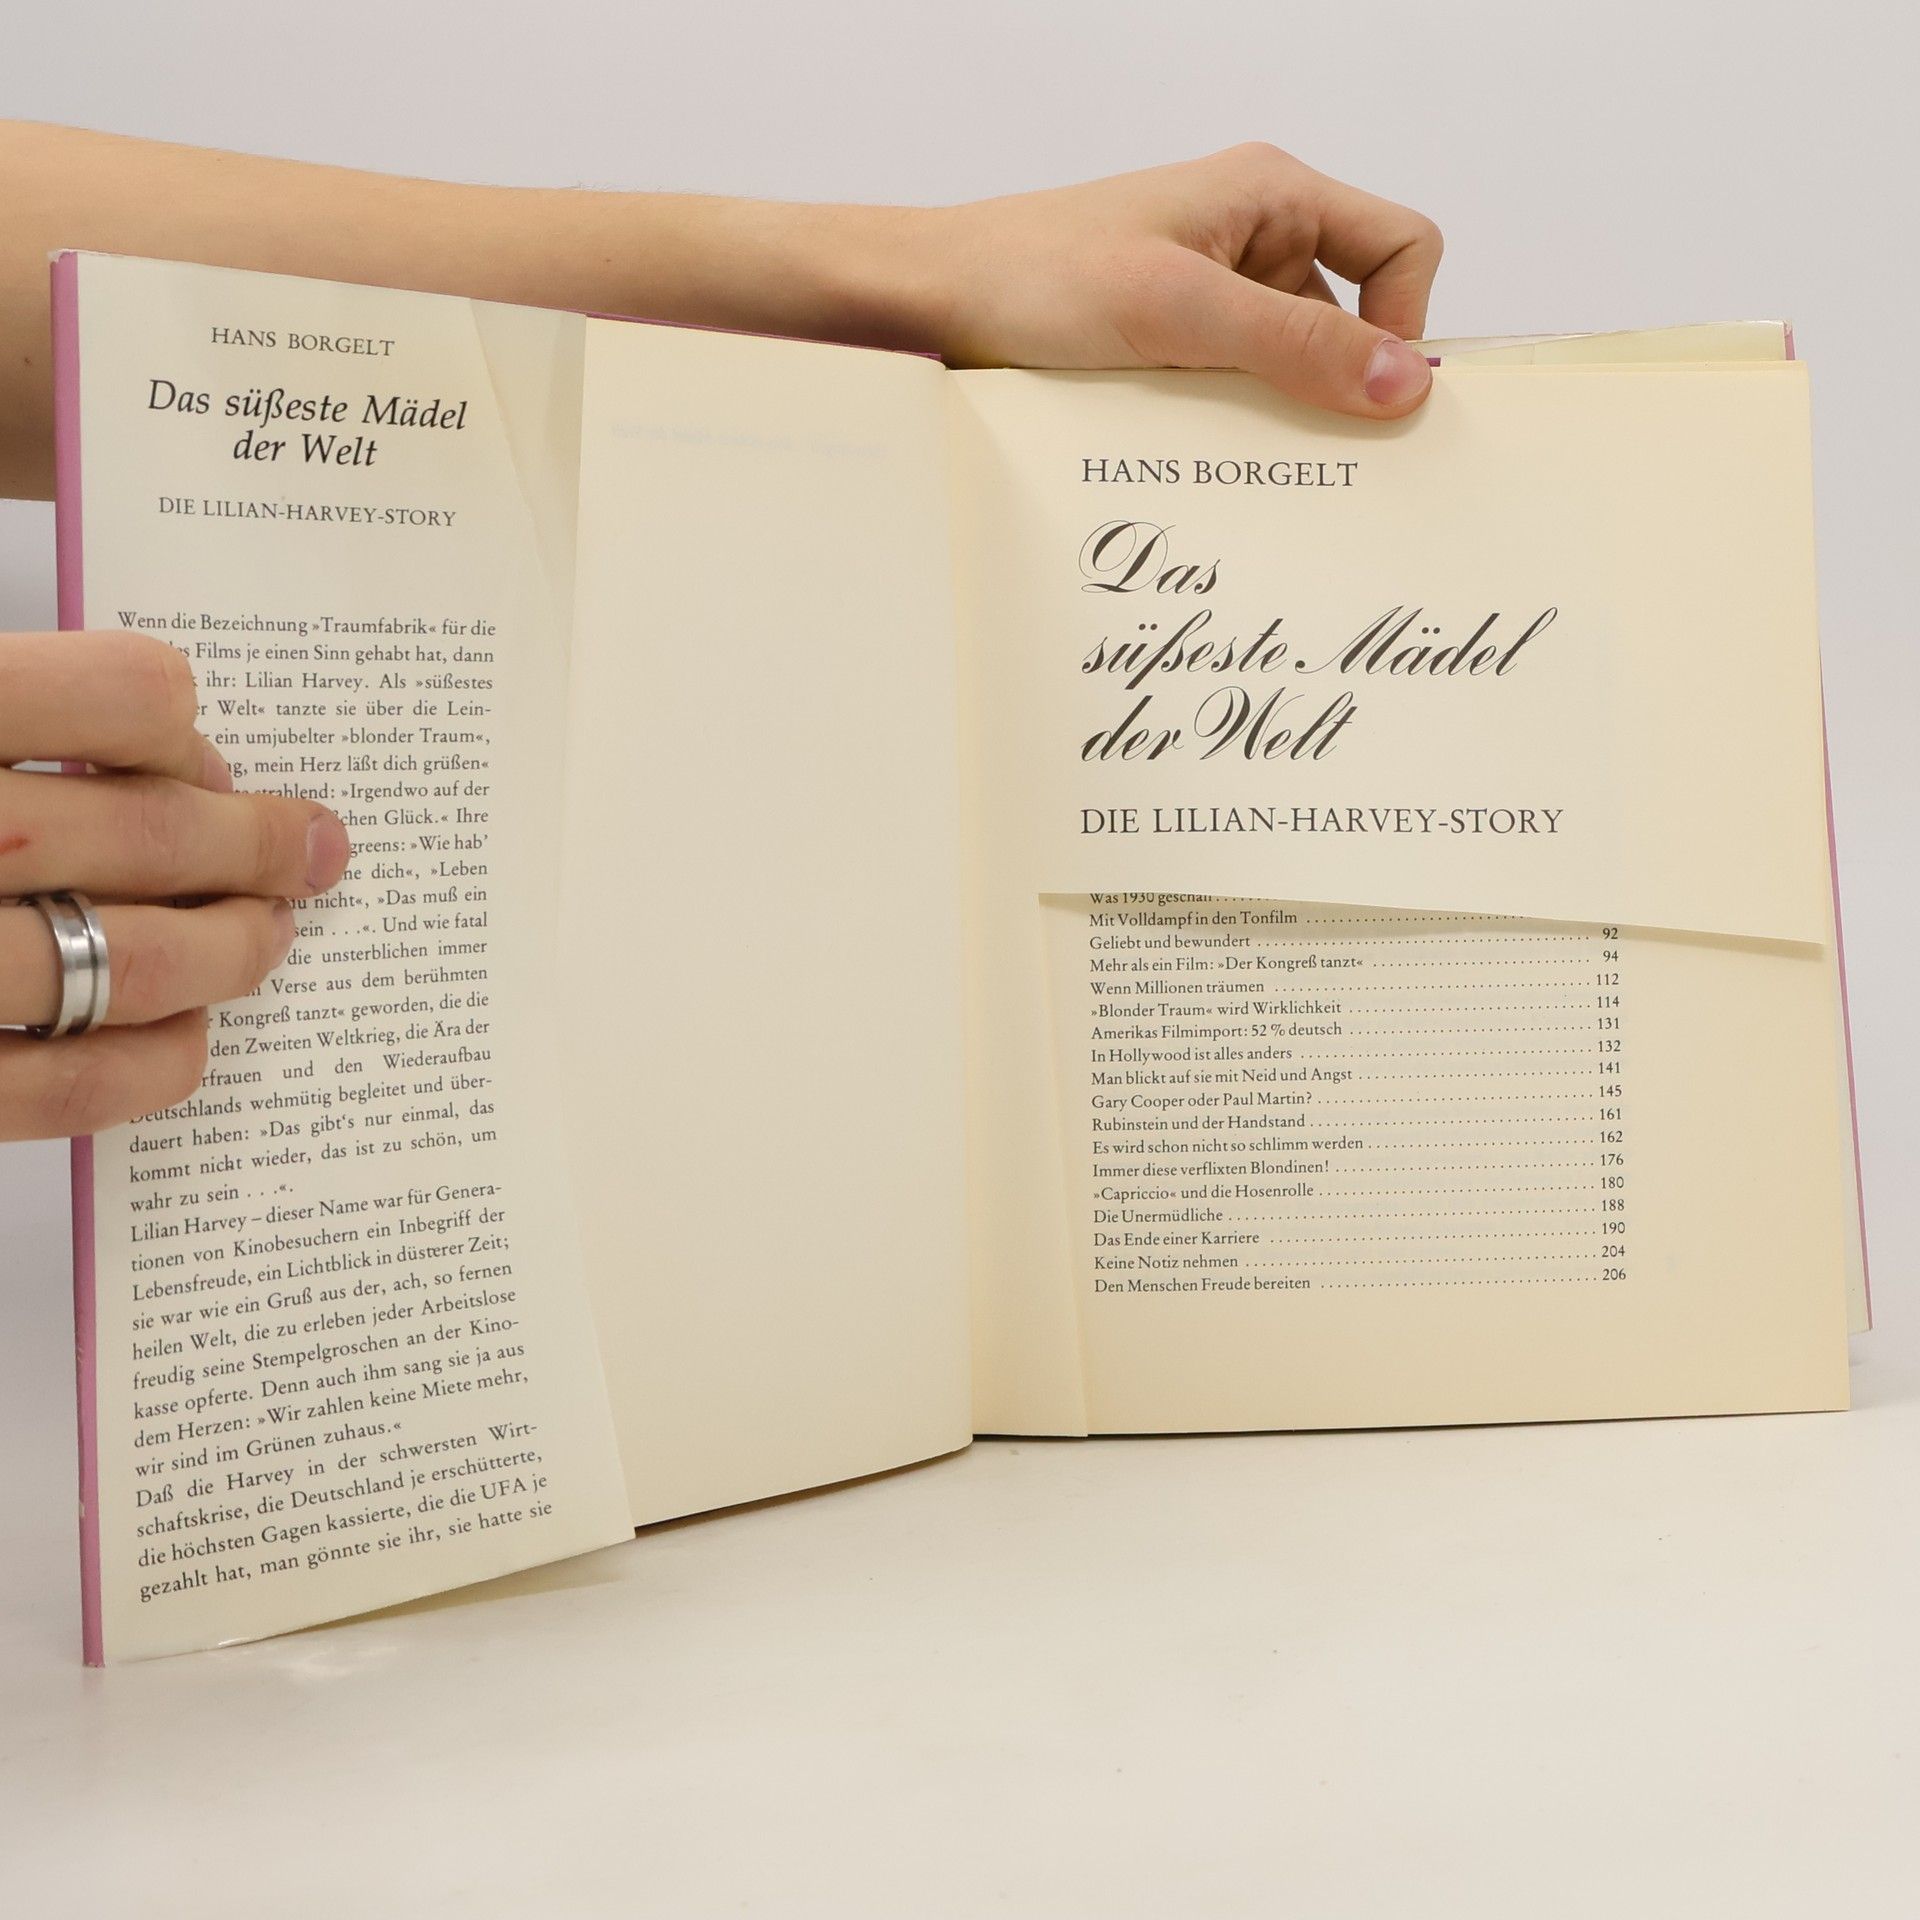 HANS BORGELT
Das süßeste Mädel
der Welt
DIE LILIAN-HARVEY-STORY
Wenn die Bezeichnung »Traumfabrik« für die
Films je einen Sinn gehabt hat, dann
ihr: Lilian Harvey. Als »süßestes
Welt« tanzte sie über die Lein-
ein umjubelter »blonder Traum«,
mein Herz läßt dich grüßen«
strahlend: »Irgendwo auf der
Glück.« Ihre
»Wie hab'
dich«, »Leben
nicht«, »Das muß ein
sein . . .«. Und wie fatal
die unsterblichen immer
Verse aus dem berühmten
Kongreß tanzt« geworden, die die
den Zweiten Weltkrieg, die Ära der
und den Wiederaufbau
Deutschlands wehmütig begleitet und über-
dauert haben: »Das gibt's nur einmal, das
kommt nicht wieder, das ist zu schön, um
wahr zu sein . . .«.
Lilian Harvey – dieser Name war für Genera-
tionen von Kinobesuchern ein Inbegriff der
Lebensfreude, ein Lichtblick in düsterer Zeit;
sie war wie ein Gruß aus der, ach, so fernen
heilen Welt, die zu erleben jeder Arbeitslose
freudig seine Stempelgroschen an der Kino-
kasse opferte. Denn auch ihm sang sie ja aus
dem Herzen: »Wir zahlen keine Miete mehr,
wir sind im Grünen zuhaus.«
Daß die Harvey in der schwersten Wirt-
schaftskrise, die Deutschland je erschütterte,
die höchsten Gagen kassierte, die die UFA je
gezahlt hat, man gönnte sie ihr, sie hatte sie
HANS BORGELT
Das
süßeste Mädel
der Welt
DIE LILIAN-HARVEY-STORY
Was 1930 geschah
Mit Volldampf in den Tonfilm
Geliebt und bewundert 92
Mehr als ein Film: »Der Kongreß tanzt« 94
Wenn Millionen träumen 112
»Blonder Traum« wird Wirklichkeit 114
Amerikas Filmimport: 52 % deutsch 131
In Hollywood ist alles anders 132
Man blickt auf sie mit Neid und Angst 141
Gary Cooper oder Paul Martin? 145
Rubinstein und der Handstand 161
Es wird schon nicht so schlimm werden 162
Immer diese verflixten Blondinen! 176
»Capriccio« und die Hosenrolle 180
Die Unermüdliche 188
Das Ende einer Karriere 190
Keine Notiz nehmen 204
Den Menschen Freude bereiten 206